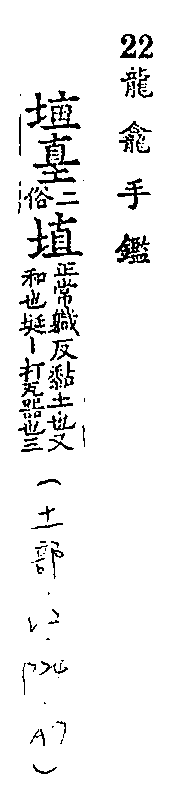 22 龍龕手鑑
二俗埴正常職反黏土也又
和也埏丨打瓦器也三
(土部.V2.P24.A7)